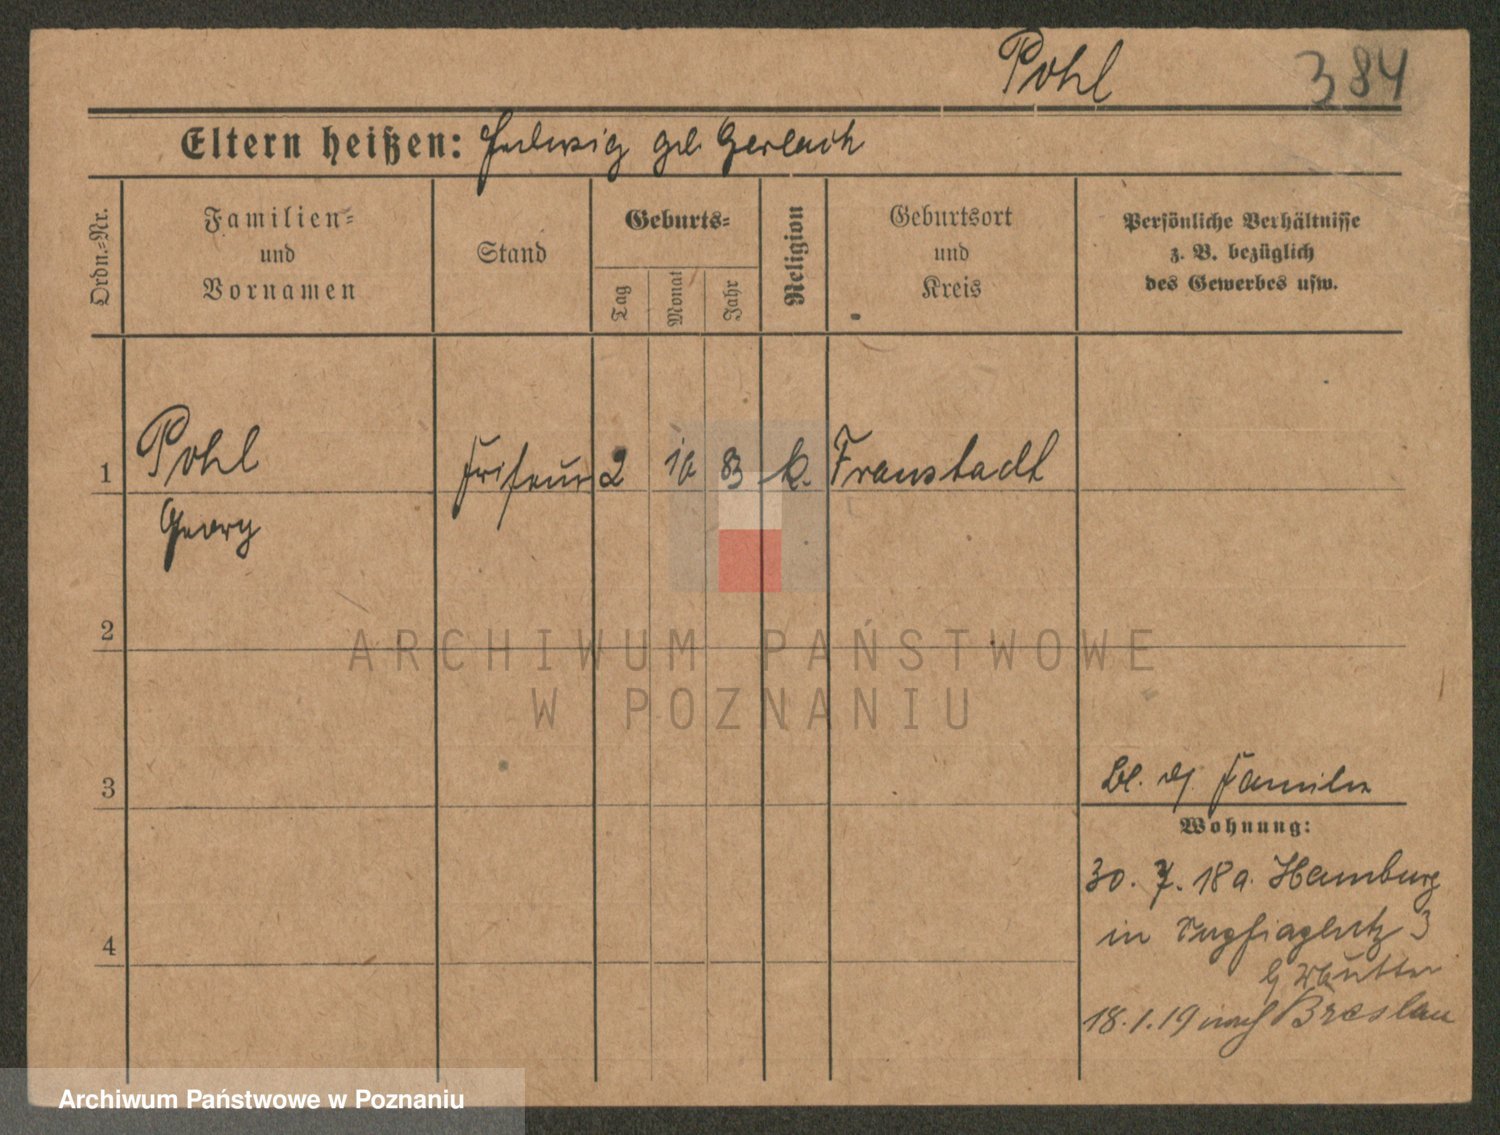 Pohl 384
Eltern heißen: Hedwig geb. Gerlach
Ordn.=Nr.
Familien=
und
Vornamen
Stand
Geburts=
Tag
Monat
Jahr
Religion
Geburtsort
und
Kreis
Persönliche Verhältnisse
z. B. bezüglich
des Gewerbes usw.
1 Pohl Friseur 2 10 83 k. Fraustadt
Georg
2
ARCHIWUM PAŃSTWOWE
W POZNANIU
3
Familie
Wohnung:
30. 7. 18 a. Hamburg
in 3
b/ Mutter
4
18.1.19 nach Breslau
Archiwum Państwowe w Poznaniu